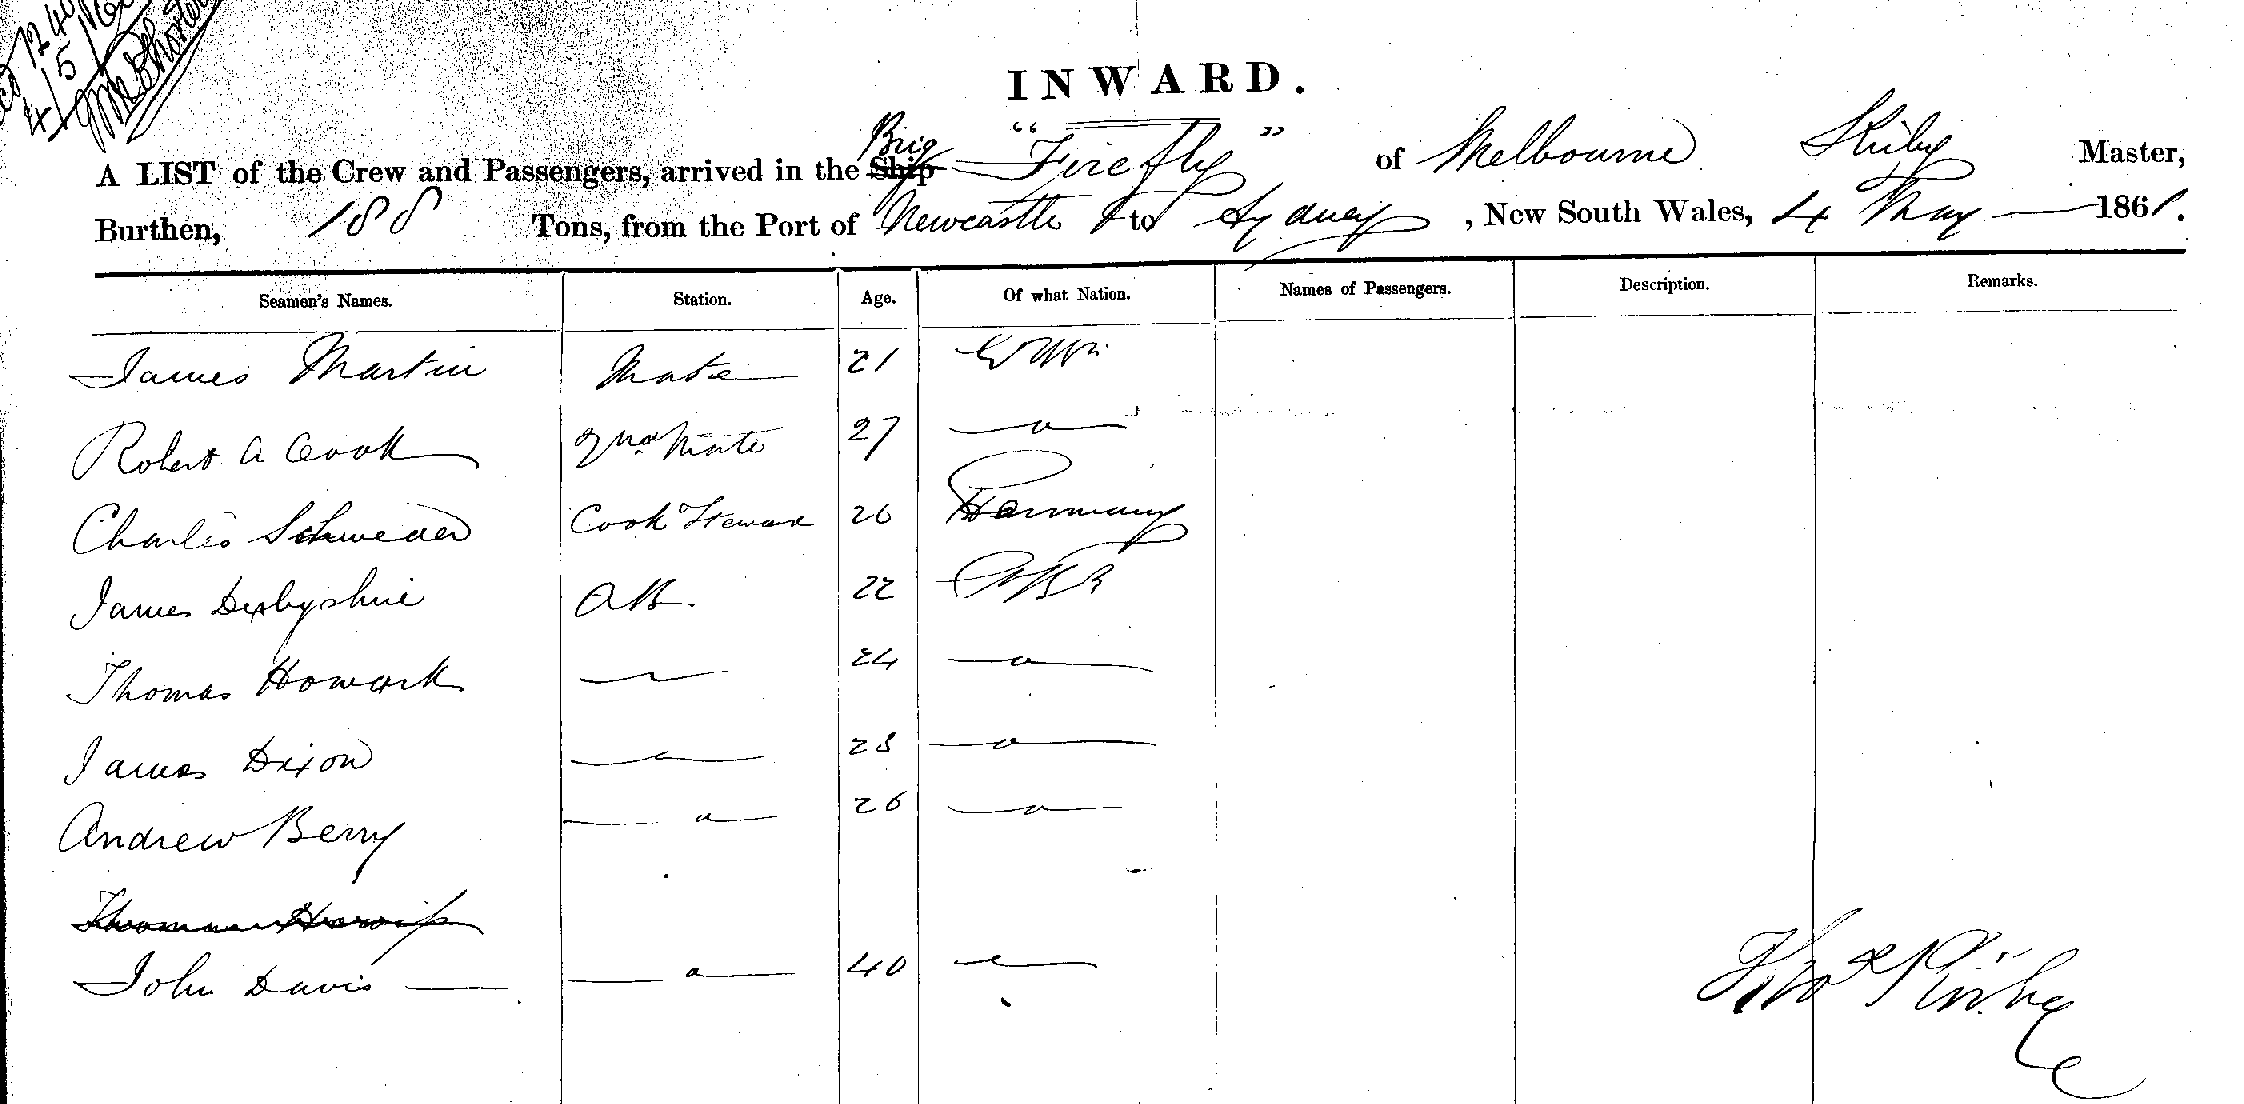 INWARD.
A LIST of the Crew and Passengers, arrived in the Ship Brig "Firefly" of Melbourne Kirby Master,
Burthen, 188 Tons, from the Port of Newcastle to Sydney, New South Wales, 4 May 1861.
Seamen's Names. Station. Age. Of what Nation. Names of Passengers. Description. Remarks.
James Martin Mate 21
Robert A Cook 2nd Mate 27
Charles Cook Steward 26 Germany
James Derbyshire AB. 22
Thomas 24
James Dixon 28
Andrew Berry 26
John Davis 40
Kirby